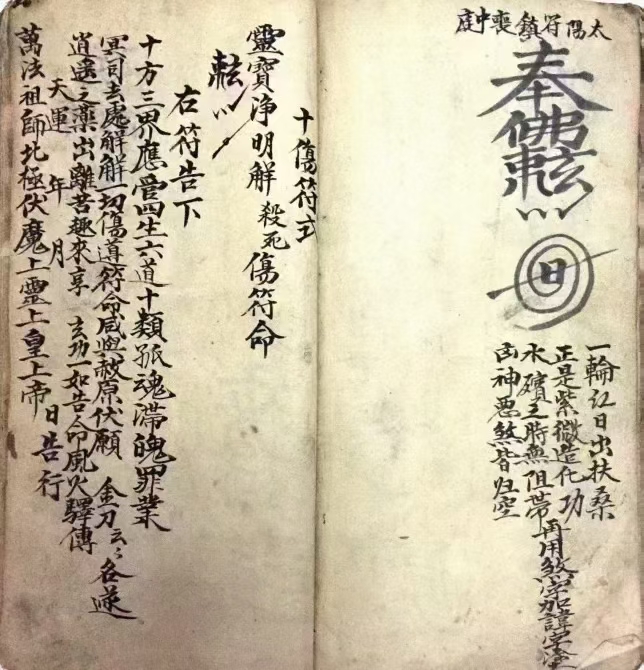 太陽符鎮喪中庭
奉佛敕
日
一輪紅日出扶桑
正是紫微造化功
水殯之時無阻帶
凶神惡煞皆归空
再用煞字加諱字
十傷符式
靈寶淨明解殺死傷符命
敕
右符告下
十方三界應管四生六道十類孤魂滯魄罪業
冥司去處解解一切傷導符命咸與赦原伏願 金刀云云各遂
逍遥之藥出離苦趣來享 玄功一如告命風火驛傳
天運 年 月 日告行
萬法祖師北極伏魔上靈上皇上帝